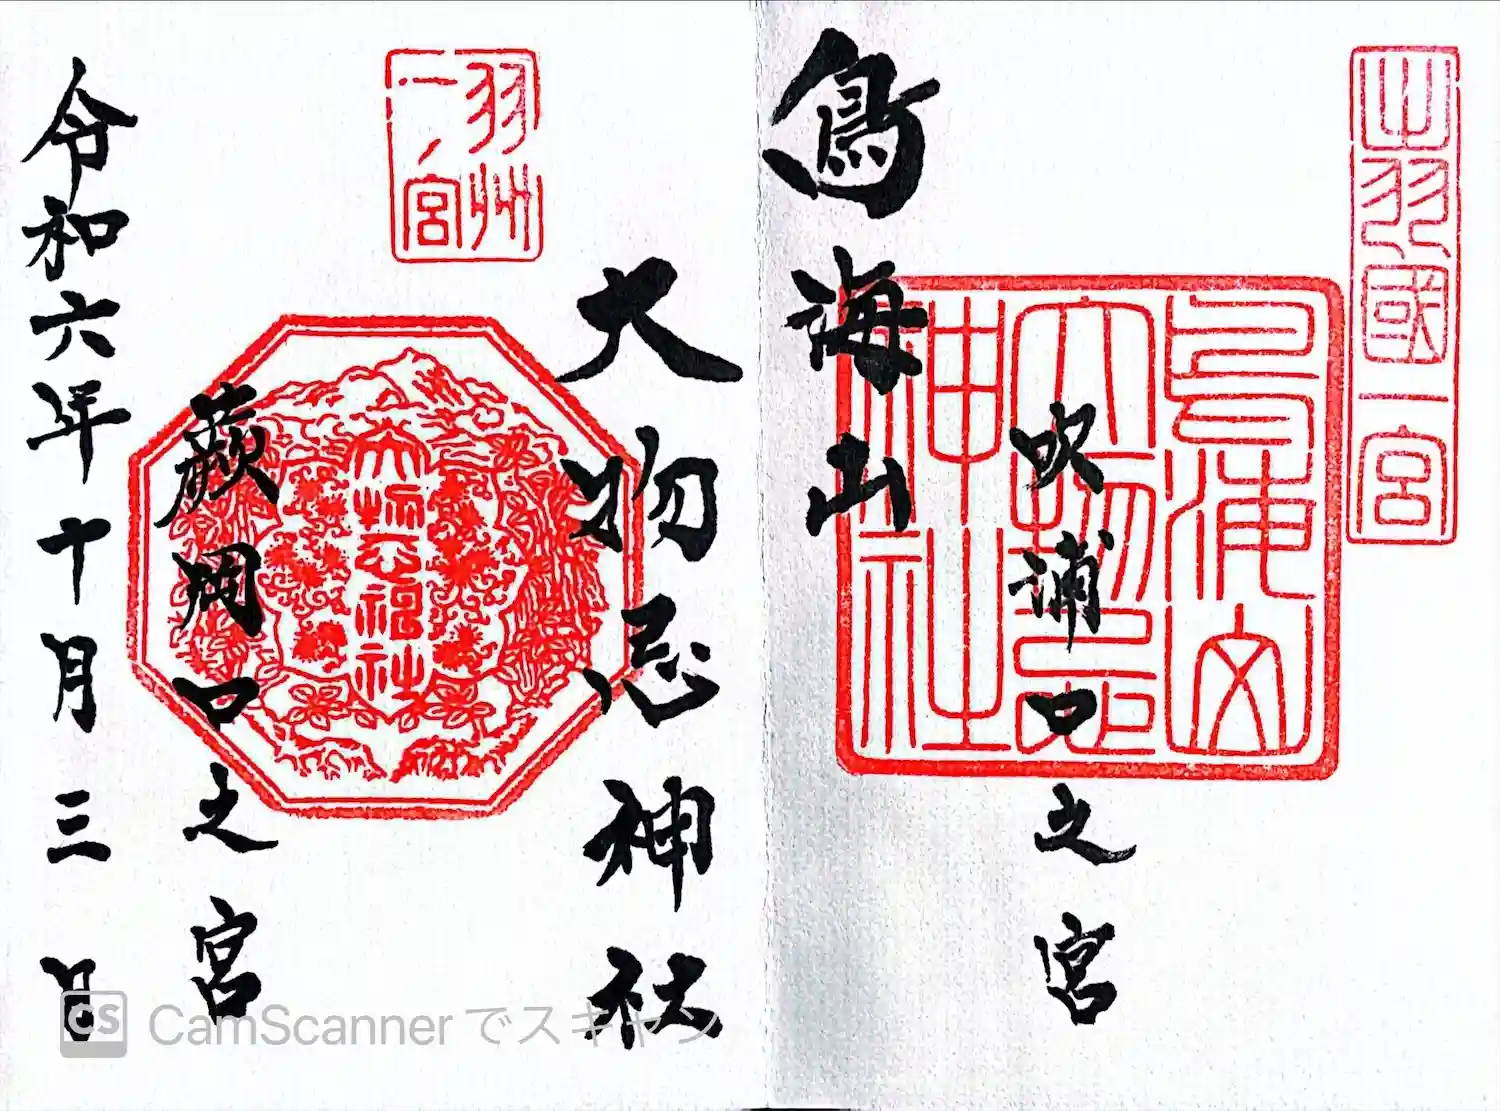 出羽國一宮
鳥海山
大物忌
神社
吹浦口之宮
鳥海山
大物忌神社
羽州
一ノ宮
大物忌神社
蕨岡口之宮
令和六年十月三日
CS CamScannerでスキャン